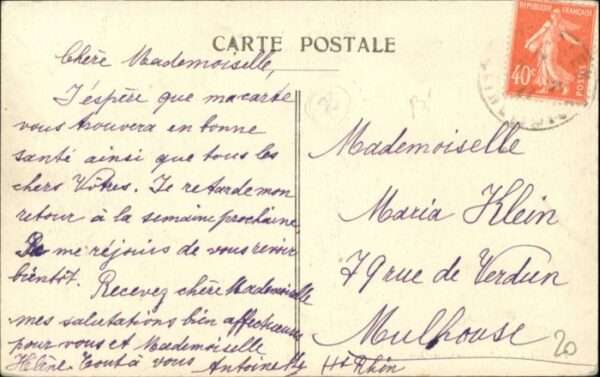 CARTE POSTALE
Chère Mademoiselle,
J'éspère que ma carte
vous trouvera en bonne
santé ainsi que tous les
chers Vôtres. Je retarde mon
retour à la semaine prochaine.
Je me réjouis de vous revoir
bientôt. Recevez chère Mademoiselle
mes salutations bien affectueuses
pour vous et Mademoiselle
Hélène. Tout à vous Antoinette
REPUBLIQUE FRANÇAISE
40c
POSTES
Mademoiselle
Maria Klein
79 rue de Verdun
Mulhouse
Ht Rhin
20